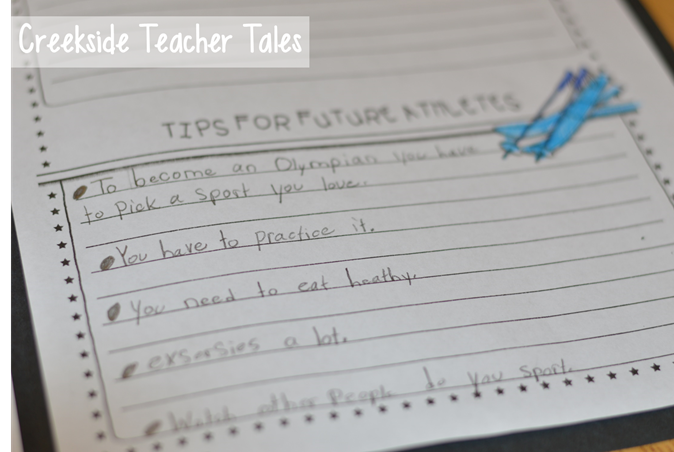 Creekside Teacher Tales
TIPS FOR FUTURE ATHLETES
To become an Olympian you have
to pick a sport you love.
You have to practice it.
You need to eat heathy.
exsersies a lot.
Watch other people do you sport.